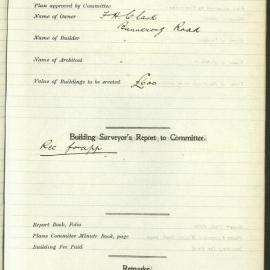 Plan approved by Committee
Name of Owner F H Clark
Bunnerong Road
Name of Builder
Name of Architect
Value of Buildings to be erected £600
Building Surveyor's Report to Committee.
Rec for app
Report Book, Folio
Plans Committee Minute Book, page
Building Fee Paid
Remarks